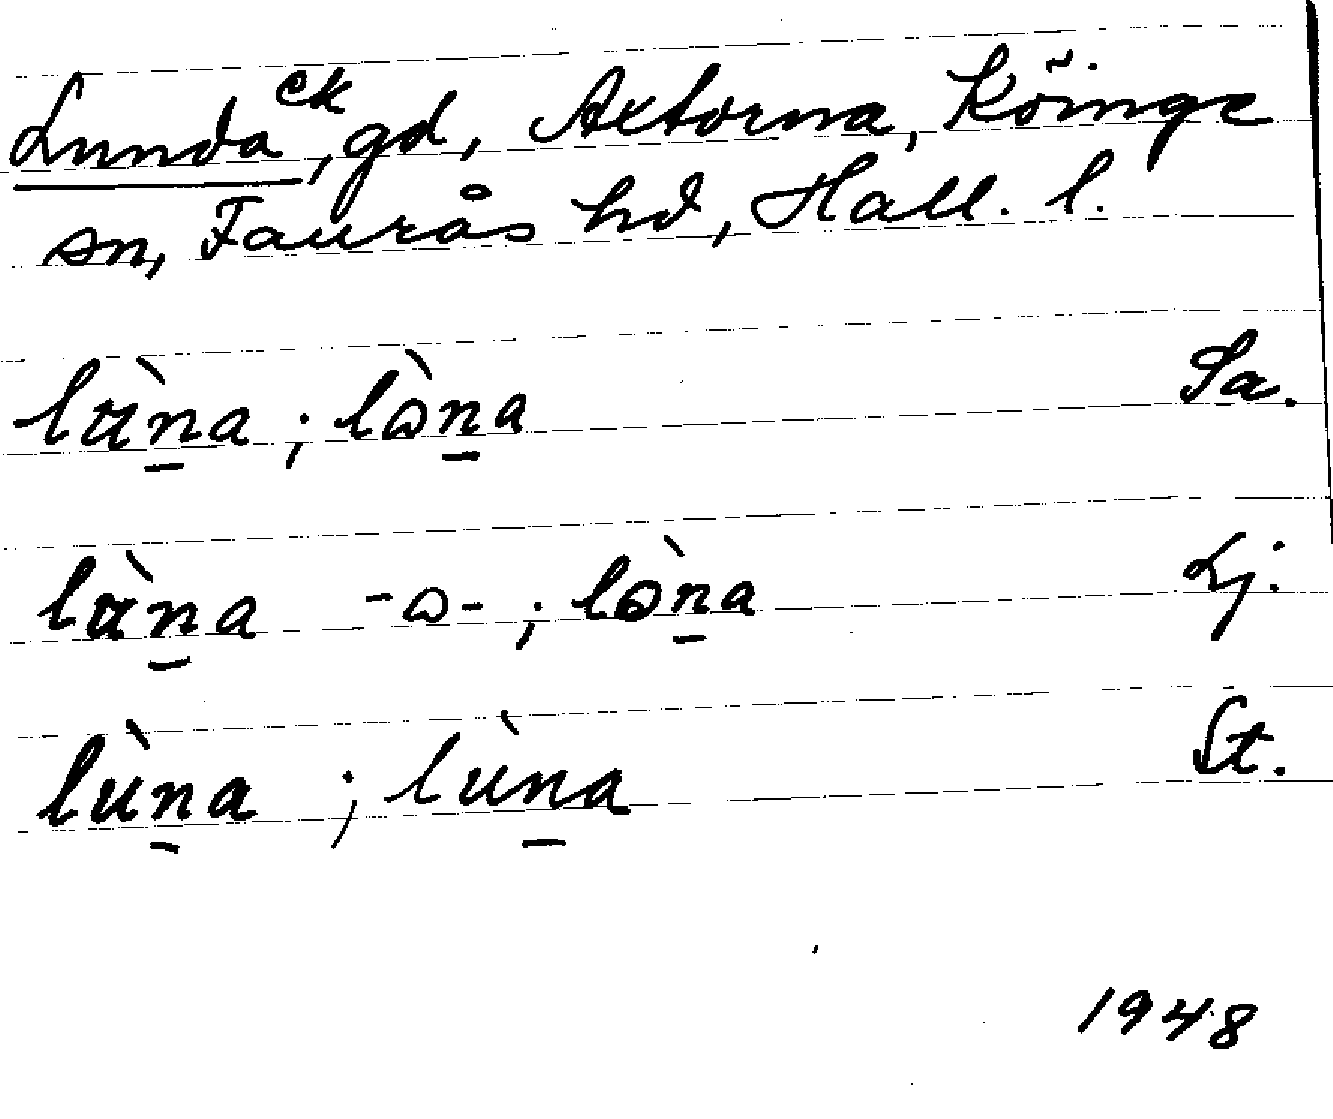 Lunda ek, gd, Axtorna, Köinge
sn, Faurås hd, Hall. l.
lùn̲a ; lòn̲a Sa.
lùn̲a -ω- ; lòn̲a Lj.
lùn̲a ; lùn̲a St.
1948